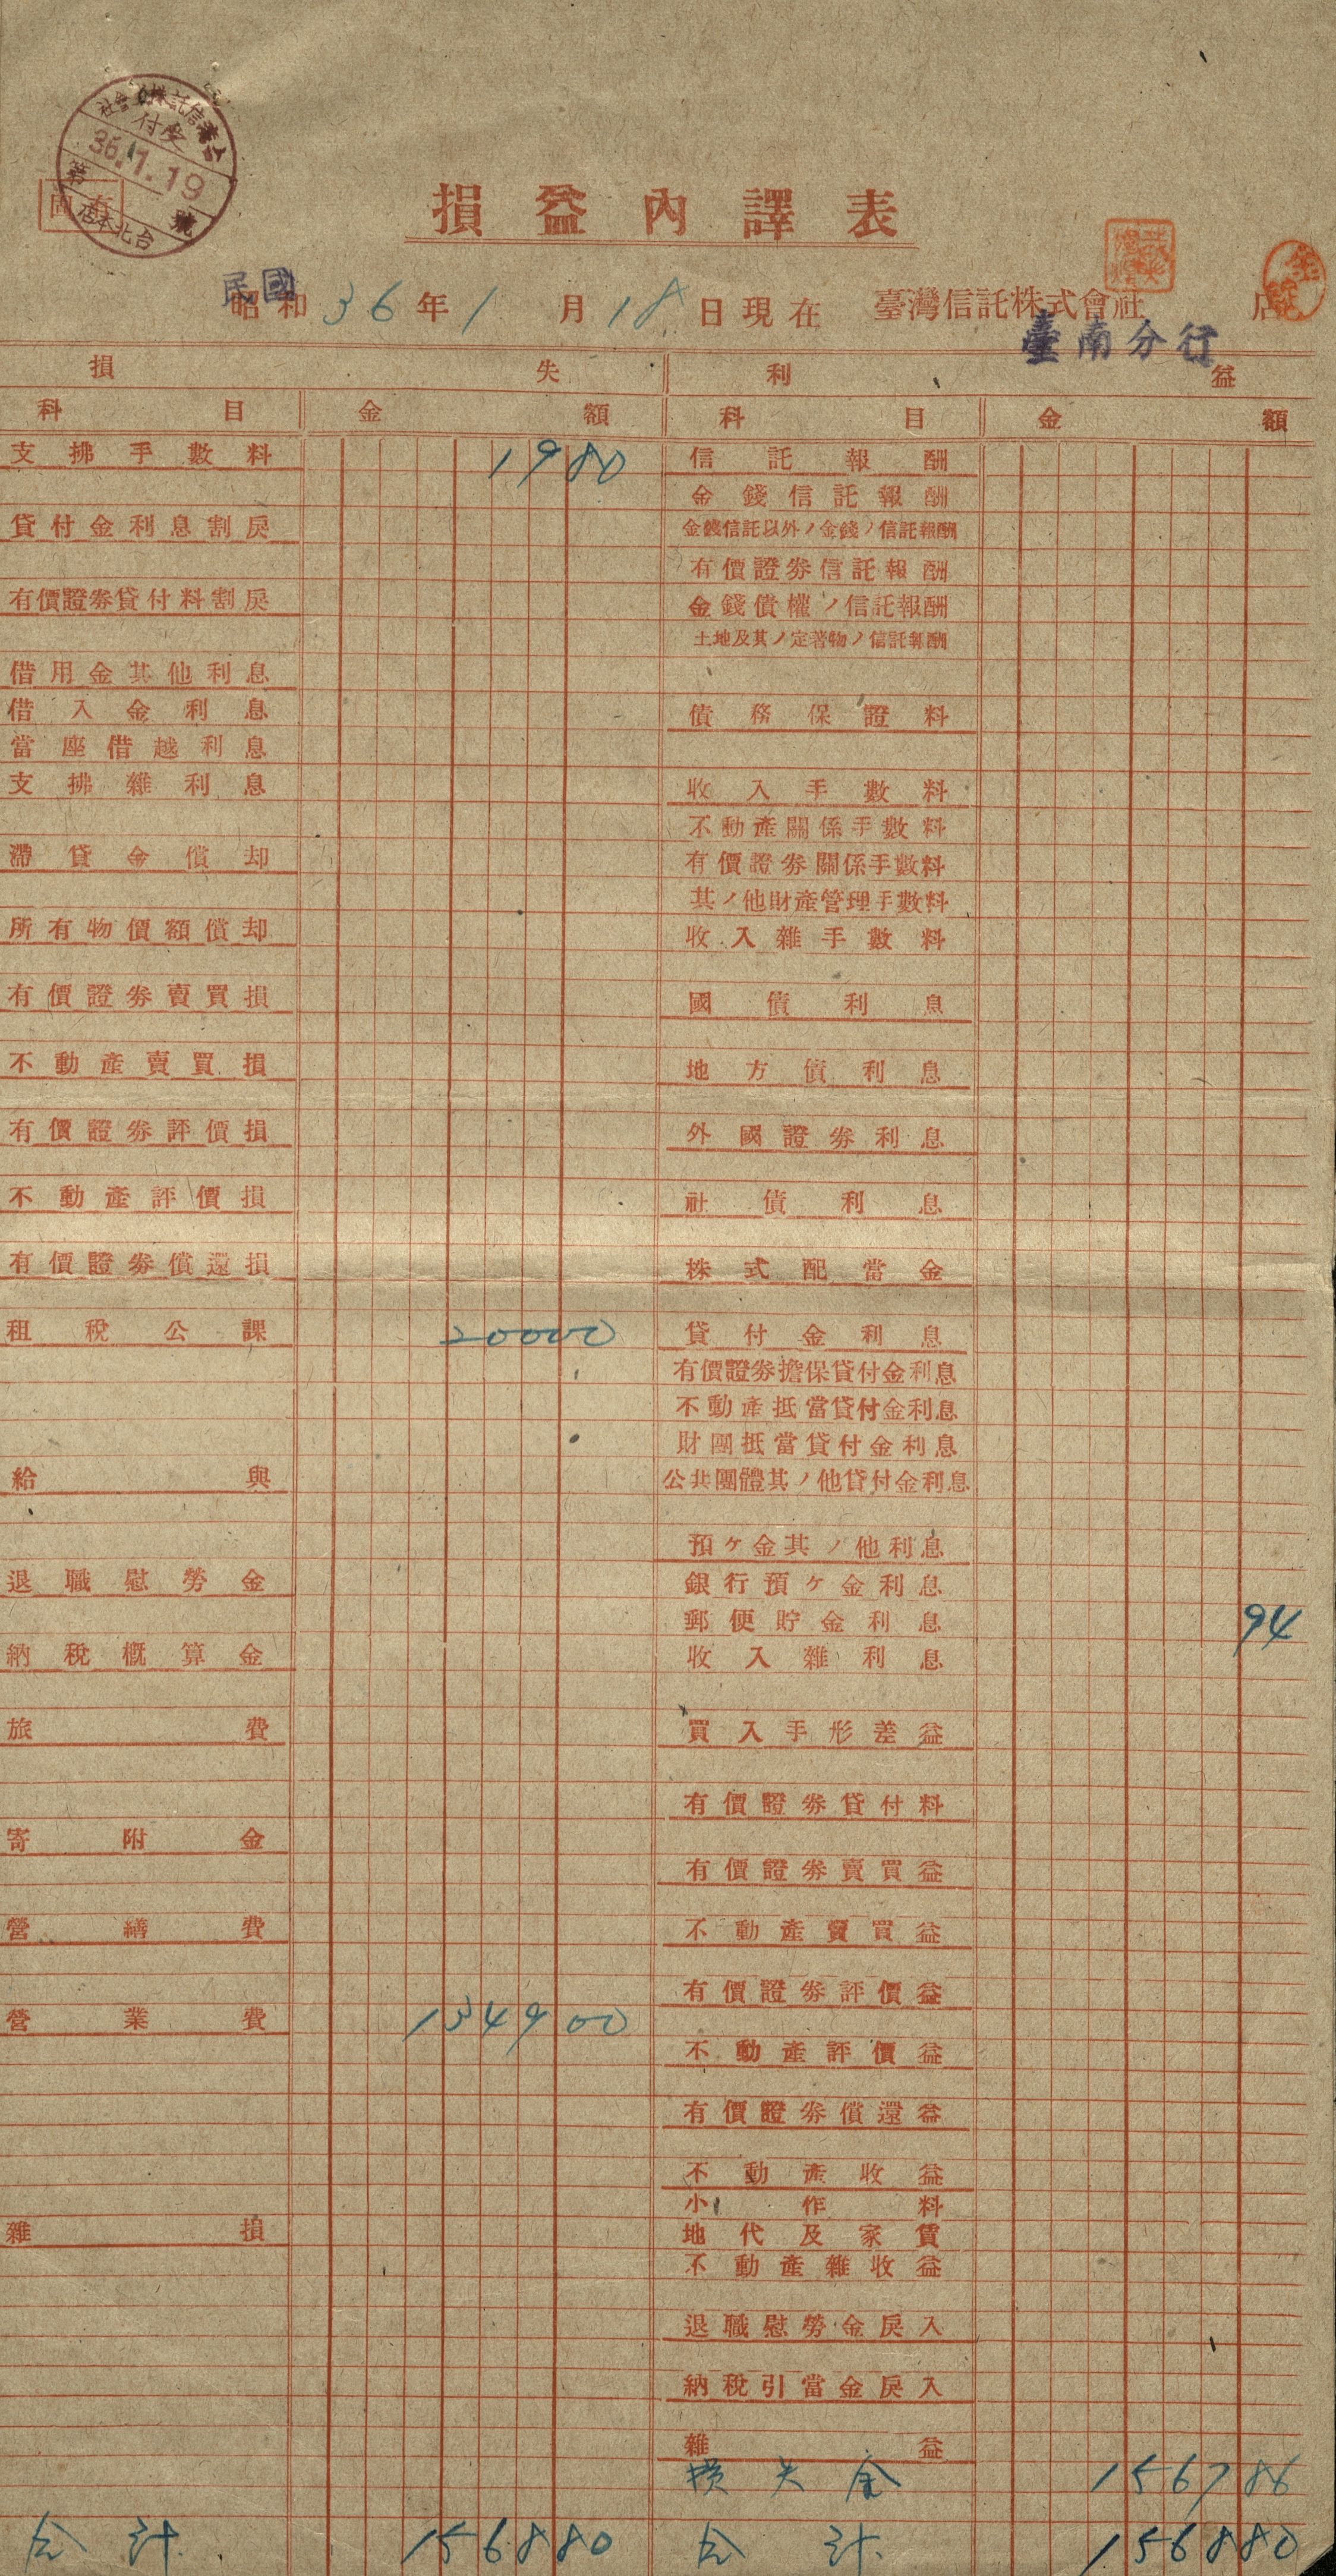 臺灣信託株式會社
受付
36.1.19
第 號
台北本店
損益內譯表
民國
昭和 36 年 1 月 18 日現在 臺灣信託株式會社 店
臺南分行
損 失
科 目 金 額
支拂手數料 1980
貸付金利息割戾
有價證券貸付料割戾
借用金其他利息
借入金利息
當座借越利息
支拂雜利息
滯貸金償却
所有物價額償却
有價證券賣買損
不動產賣買損
有價證券評價損
不動產評價損
有價證券償還損
租稅公課 20000
給與
退職慰勞金
納稅概算金
旅費
寄附金
營繕費
營業費 134900
雜損
合計 156880
利 益
科 目 金 額
信託報酬
金錢信託報酬
金錢信託以外ノ金錢ノ信託報酬
有價證券信託報酬
金錢債權ノ信託報酬
土地及其ノ定著物ノ信託報酬
債務保證料
收入手數料
不動產關係手數料
有價證券關係手數料
其ノ他財產管理手數料
收入雜手數料
國債利息
地方債利息
外國證券利息
社債利息
株式配當金
貸付金利息
有價證券擔保貸付金利息
不動產抵當貸付金利息
財團抵當貸付金利息
公共團體其ノ他貸付金利息
預ケ金其ノ他利息
銀行預ケ金利息
郵便貯金利息 94
收入雜利息
買入手形差益
有價證券貸付料
有價證券賣買益
不動產賣買益
有價證券評價益
不動產評價益
有價證券償還益
不動產收益
小作料
地代及家賃
不動產雜收益
退職慰勞金戾入
納稅引當金戾入
雜益
損失金 156786
合計 156880